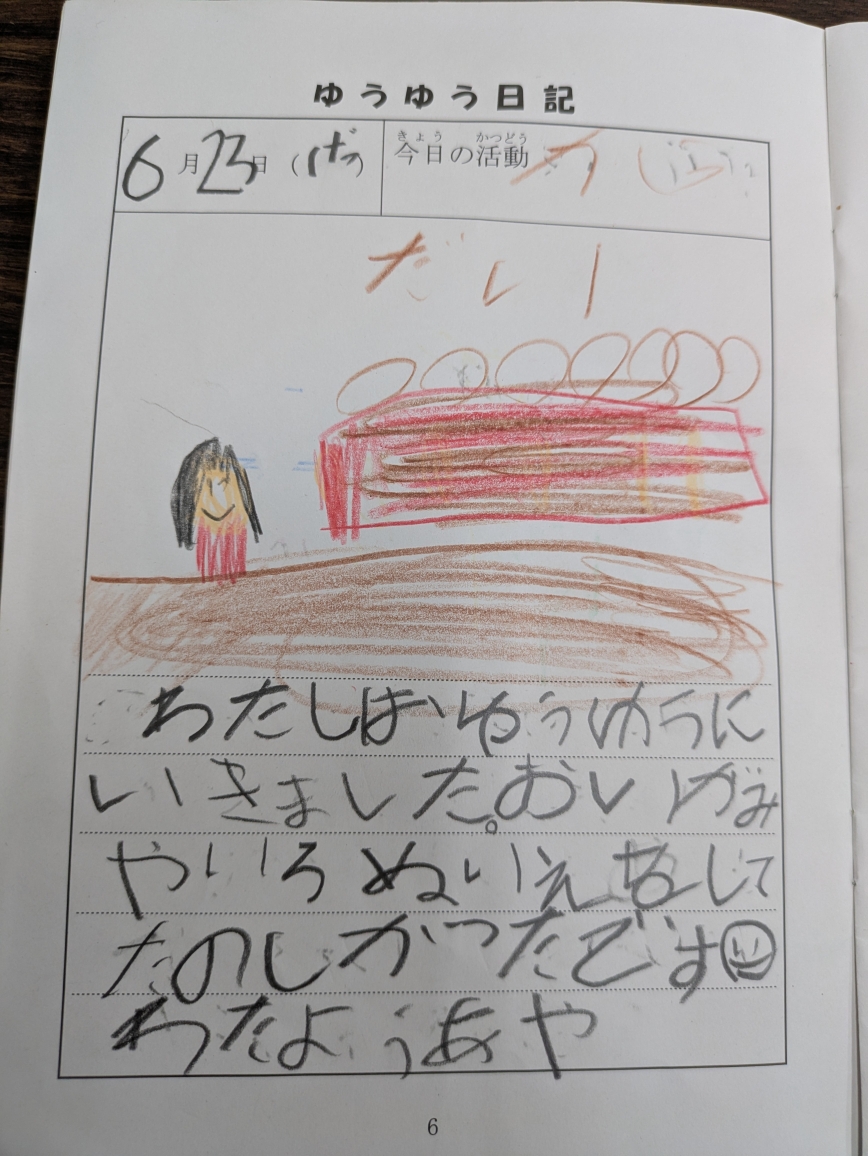 ゆうゆう日記
6月23日(げつ)
きょう かつどう
今日の活動
だい
わたしは ゆうゆうに
いきました。おりがみ
やいろぬいえをして
たのしかったです
わたようあや
6